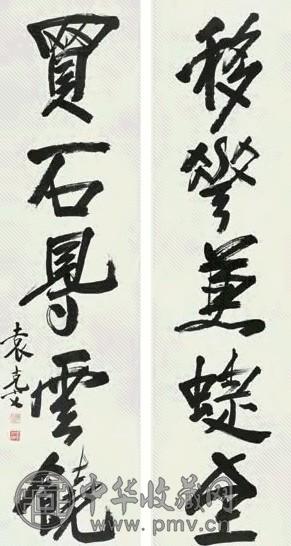 移花兼蝶至
買石得雲饒
袁克文
中华收藏网
www.pmv.cn